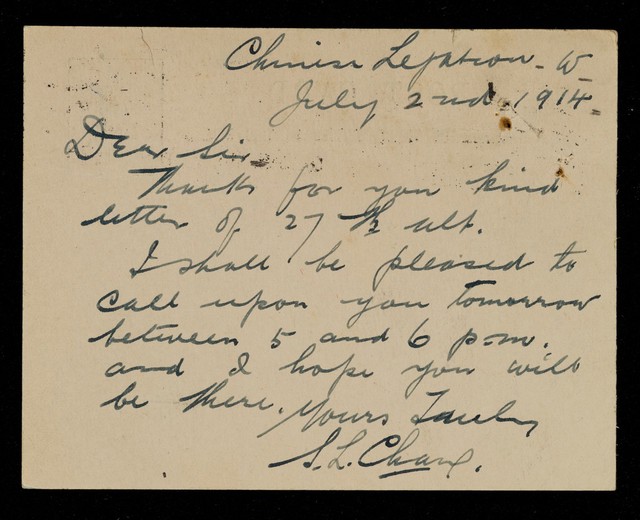 Chinese Legation - W
July 2nd. 1914
Dear Sir
Thanks for you kind
letter of 27th ult.
I shall be pleased to
call upon you tomorrow
between 5 and 6 p.m.
and I hope you will
be there. Yours Truly
S. L. Chang.